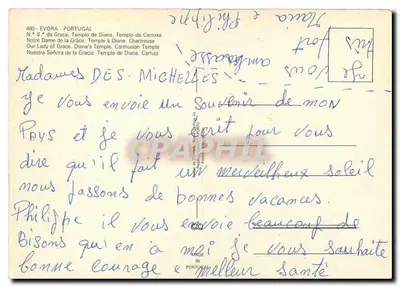 480 - EVORA - PORTUGAL
N.ª S.ª da Graça. Templo de Diana. Templo da Cartuxa
Notre Dame de la Grâce. Temple à Diane. Chartreuse
Our Lady of Grace. Diana's Temple. Carthusian Temple
Nuestra Señora de la Gracia. Templo de Diana. Cartuja
Je vous embrasse
très fort
Maria e Philippe
Madames DES-MICHELLES
Je vous envoie un souvenir de mon
Pays et je vous écrit pour vous
dire qu'il fait un merveilheux soleil
nous passons de bonnes vacances.
Philippe il vous envoie beaucoup de
Bisons qui en a moi je vous souhaite
bonne courage e meilleur santé
CARTAPHIL
MADE
IN
PORTUGAL